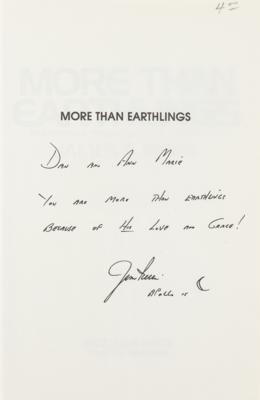 45
MORE THAN EARTHLINGS
Dan and Ann Marie
You are more than earthlings
Because of His Love and Grace!
Jim Irwin
Apollo 15